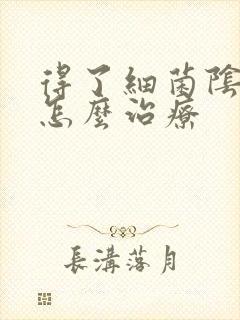 得了細菌陰
怎麼治療
長溝落月